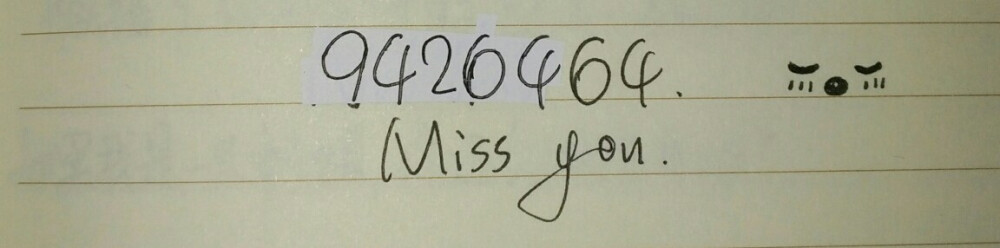 9420464.
Miss you.